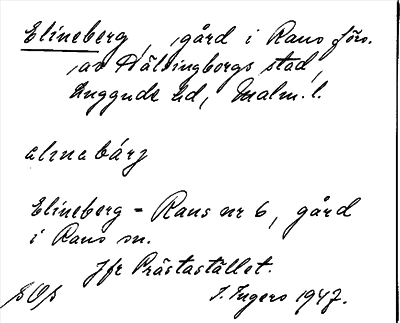 Elineberg, gård i Raus förs.
av Hälsingborgs stad,
Luggude hd, Malm. l.
elinabárj
Elineberg = Raus nr 6, gård
i Raus sn.
Jfr Prästastället.
I. Ingers 1947.